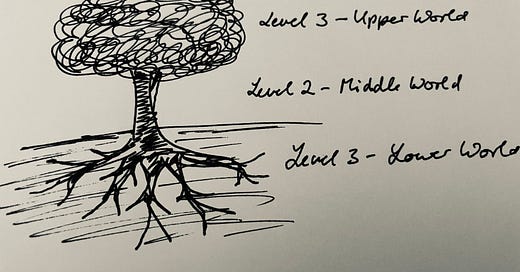 Level 3 - Upper World
Level 2 - Middle World
Level 3 - Lower World